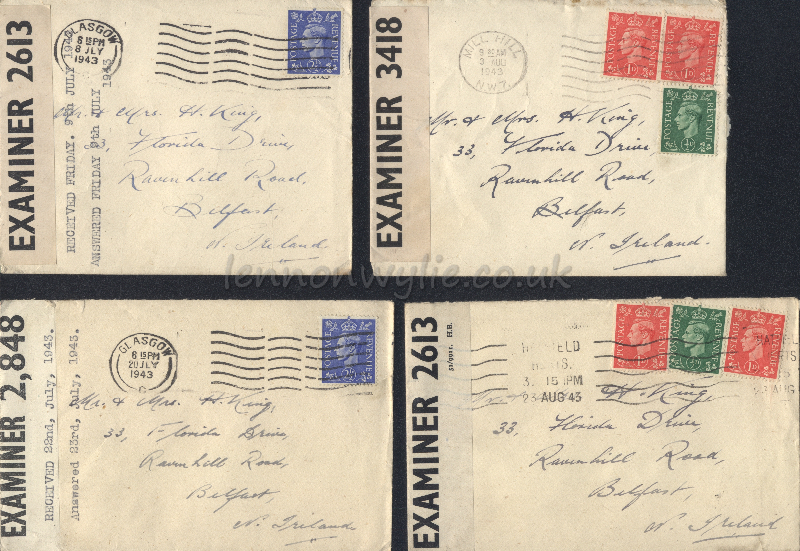 EXAMINER 2613
RECEIVED FRIDAY. 9th JULY 1943
ANSWERED FRIDAY 9th JULY 1943
GLASGOW
6 15PM
8 JLY
1943
POSTAGE REVENUE
Mr. & Mrs. H. King,
33, Florida Drive,
Ravenhill Road,
Belfast,
N. Ireland
EXAMINER 3418
MILL HILL
9 AM
3 AUG
1943
N.W.7.
POSTAGE REVENUE
1D
POSTAGE REVENUE
1D
POSTAGE REVENUE
Mr. & Mrs. H. King,
33, Florida Drive,
Ravenhill Road,
Belfast,
N. Ireland.
lennonwylie.co.uk
EXAMINER 2,848
RECEIVED 22nd, July, 1943.
Answered 23rd, July, 1943.
GLASGOW
6 15PM
20 JLY
1943
POSTAGE REVENUE
Mr. & Mrs. H. King,
33, Florida Drive,
Ravenhill Road,
Belfast,
N. Ireland
EXAMINER 2613
H.B.
3. 15 PM
23 AUG 43
POSTAGE REVENUE
POSTAGE REVENUE
POSTAGE REVENUE
H. King,
33, Florida Drive,
Ravenhill Road,
Belfast,
N. Ireland